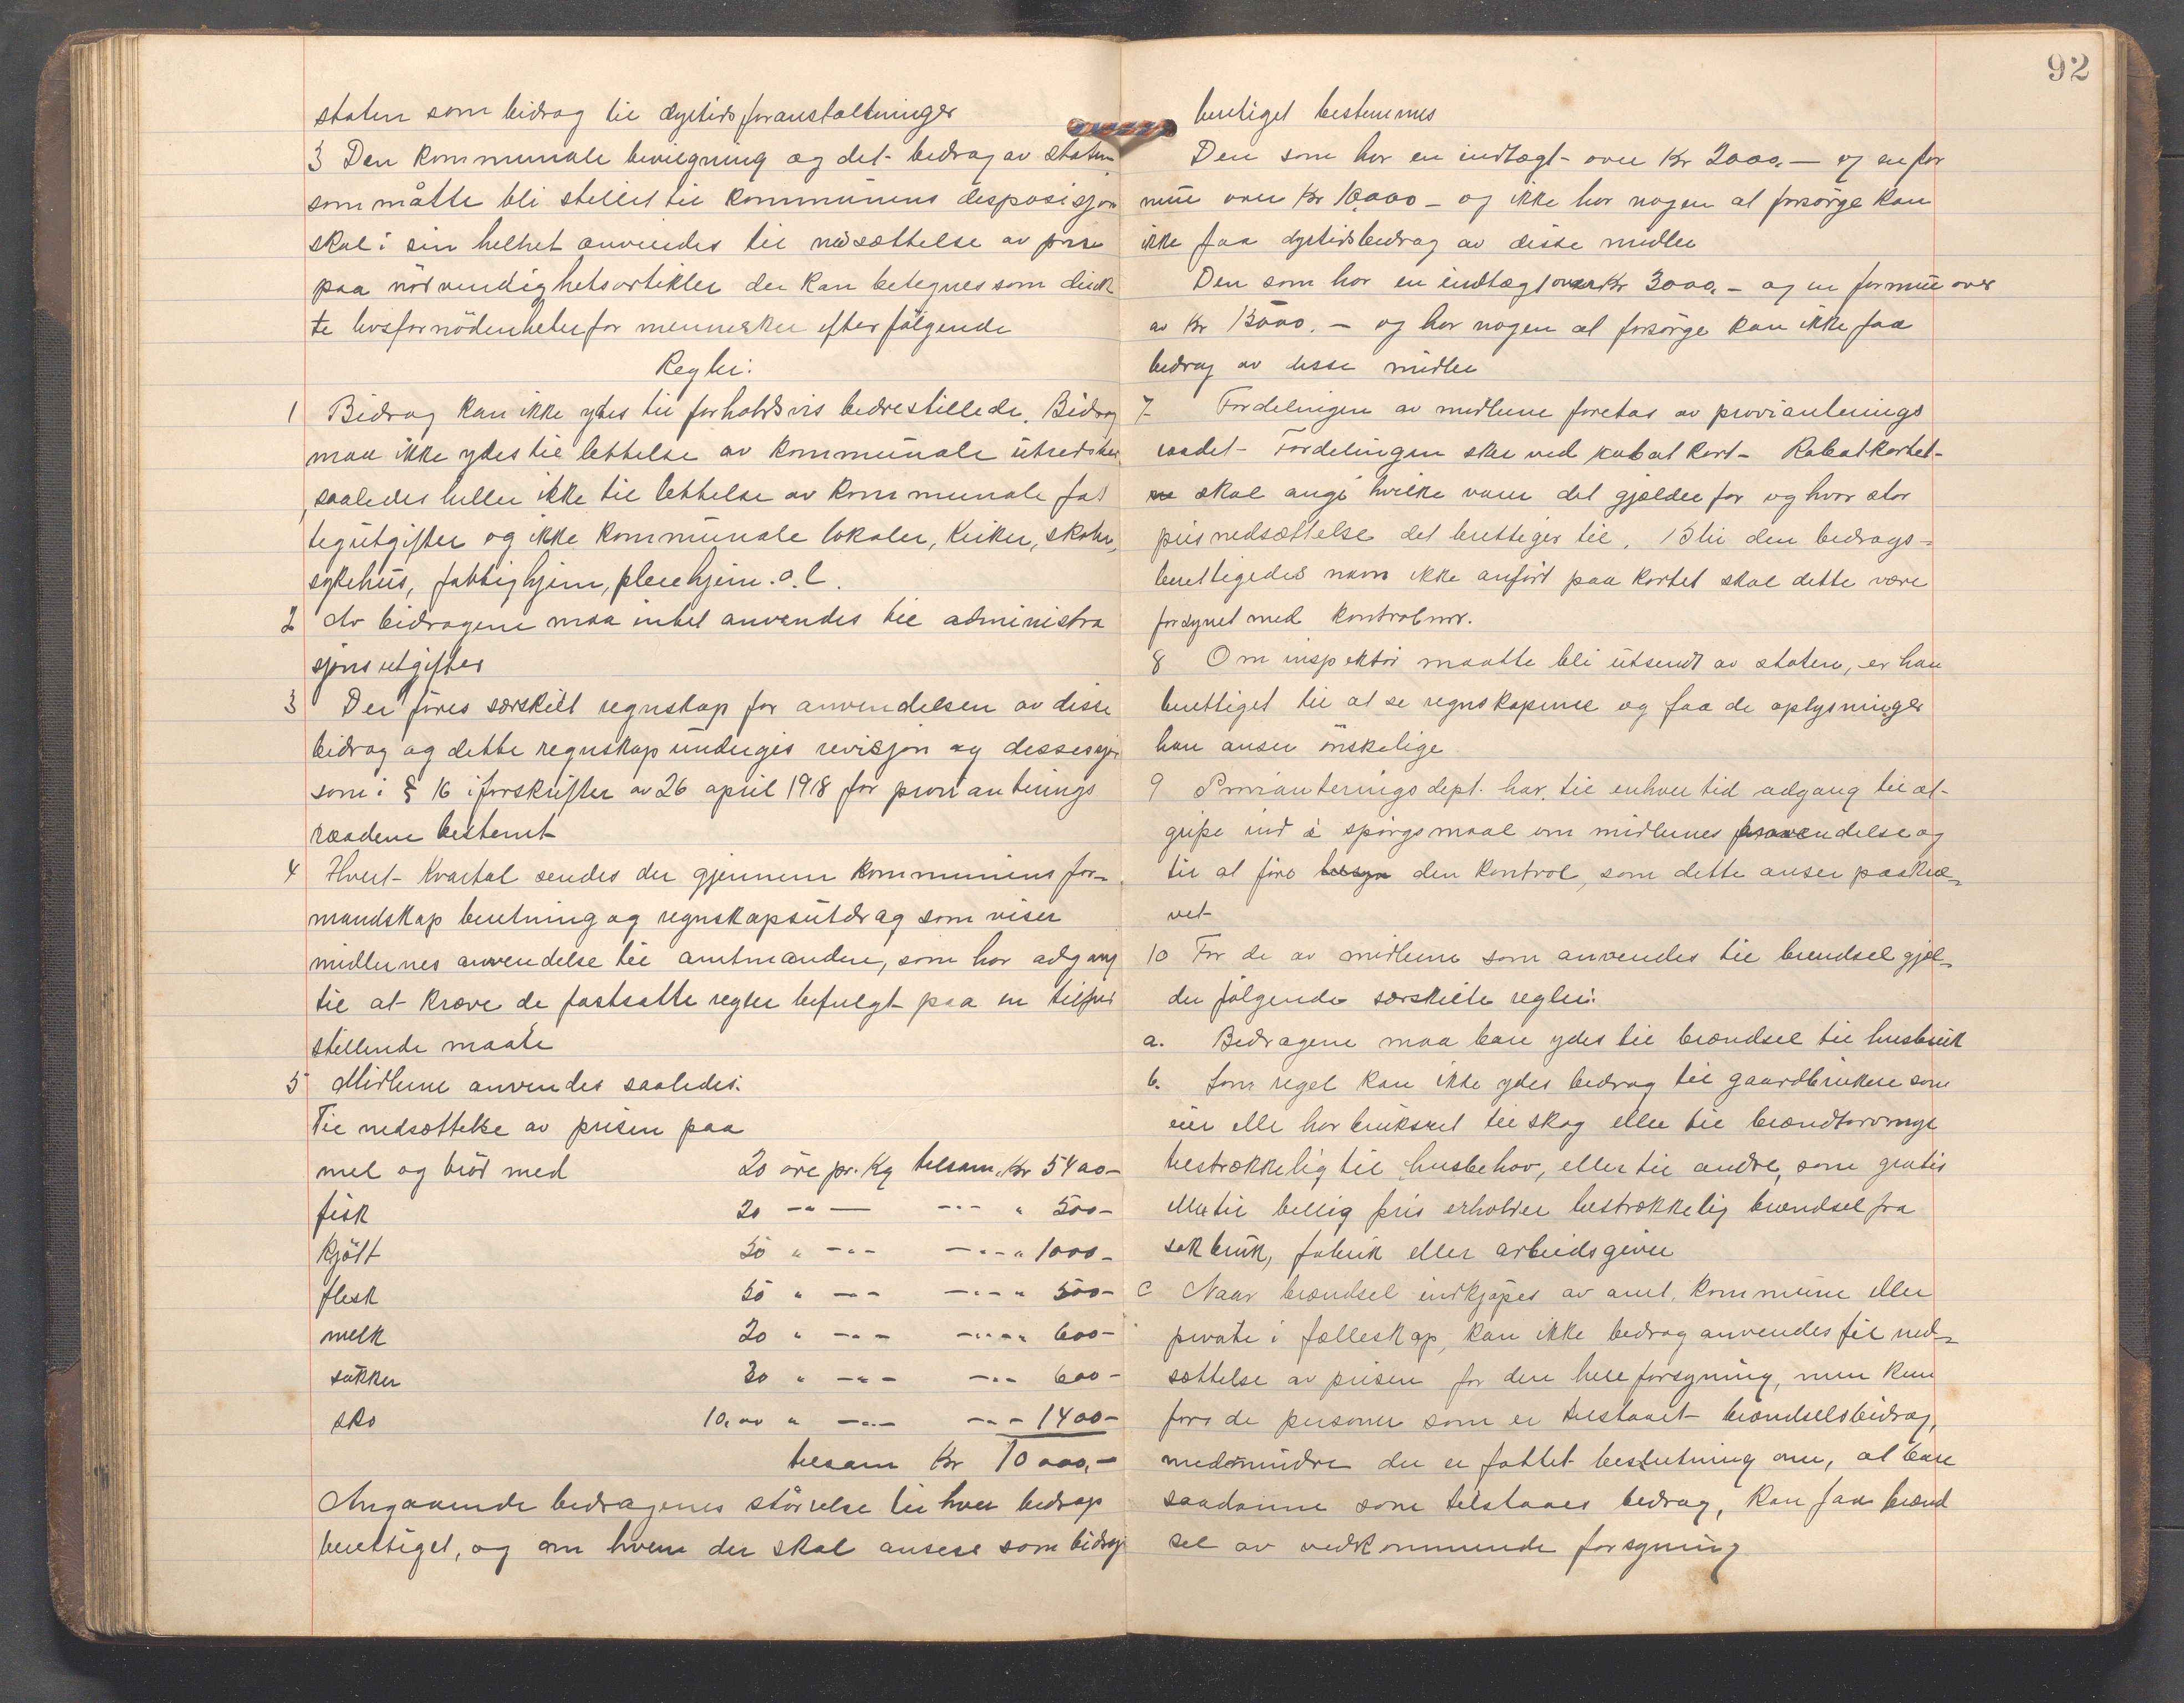 staten som bidrag til dyrtidsforanstaltninger
3 Den kommunale bevilgning og det bidrag av staten
som måtte bli stillet til kommunens disposisjon
skal i sin helhet anvendes til nedsættelse av prise
paa nödvendighetsartikler der kan betegnes som direk
te livsfornödenheter for mennesker efter følgende
Regler:
1 Bidrag kan ikke ydes til forholdsvis bedrestillede. Bidrag
maa ikke ydes til lettelse av kommunale utredsler
saaledes heller ikke til lettelse av kommunale fat
tigutgifter og ikke kommunale lokaler, kirker, skoler,
sykehus, fattighjem, pleiehjem. o. l.
2 Av bidragene maa intet anvendes til administra
sjonsutgifter
3 Der føres særskilt regnskap for anvendelsen av disse
bidrag og dette regnskap undergis revisjon og dessisjon
som i § 16 i forskrifter av 26 april 1918 for provianterings
raadene bestemt
4 Hvert kvartal sendes der gjennem kommunens for-
mandskap beretning og regnskapsutdrag som viser
midlernes anvendelse til amtmanden, som har adgang
til at kræve de fastsatte regler befulgt paa en tilfred
stillende maate
5 Midlene anvendes saaledes:
Til nedsættelse av prisen paa
mel og bröd med 20 öre pr. Kg tilsam. Kr 5400-
fisk 20 -"- --- " 500-
Kjött 50 " --- --- " 1000-
flesk 50 " --- --- " 500-
melk 20 " --- --- " 600-
sukker 30 " --- --- 600-
sko 10,00 " --- --- 1400-
tilsam Kr 10000,-
Angaaende bidragenes størrelse til hver bidrags
berettiget, og om hvem der skal ansees som bidrags
92
berettiget bestemmes
Den som har en indtægt over Kr 2000,- og en for
mue over Kr 10,000 - og ikke har nogen at forsörge kan
ikke faa dyrtidsbidrag av disse midler
Den som har en indtægt over Kr 3000,- og en formue over
av Kr 15000.- og har nogen at forsörge kan ikke faa
bidrag av disse midler
7 Fordelingen av midlene foretas av provianterings
raadet Fordelingen sker ved rabatkort - Rabatkortet-
ne skal angi hvilke varer det gjælder for og hvor stor
prisnedsættelse det berettiger til. Blir den bidrags-
berettigedes navn ikke anført paa kortet skal dette være
forsynet med kontrolnr.
8 Om inspektør maatte bli utsendt av staten, er han
berettiget til at se regnskapene og faa de oplysninger
han anser önskelige
9 Provianteringsdept. har til enhver tid adgang til at
gripe ind i spörgsmaal om midlernes anvendelse og
til at føre tilsyn den kontrol, som dette anser paakræ-
vet
10 For de av midlene som anvendes til brendsel gjæl-
der følgende særskilte regler:
a. Bidragene maa bare ydes til brændsel til husbruk
b. Som regel kan ikke ydes bidrag til gaardbrukere som
eier elle har bruksret til skog eller til brændtorvmyr
tilstrækkelig til husbehov, eller til andre, som gratis
eller til billig pris erholder tilstrækkelig brændsel fra
sakbruk, fabrik eller arbeidsgiver
c Naar brændsel indkjøpes av amt. kommune eller
private i fælleskap, kan ikke bidrag anvendes til ned-
sættelse av prisen for den hele forsyning, men kun
fors de personer som er tilstaaet brændselsbidrag,
medmindre der er fattet beslutning om, at bare
saadanne som tilstaaes bidrag, kan faa brænd
sel av vedkommende forsyning